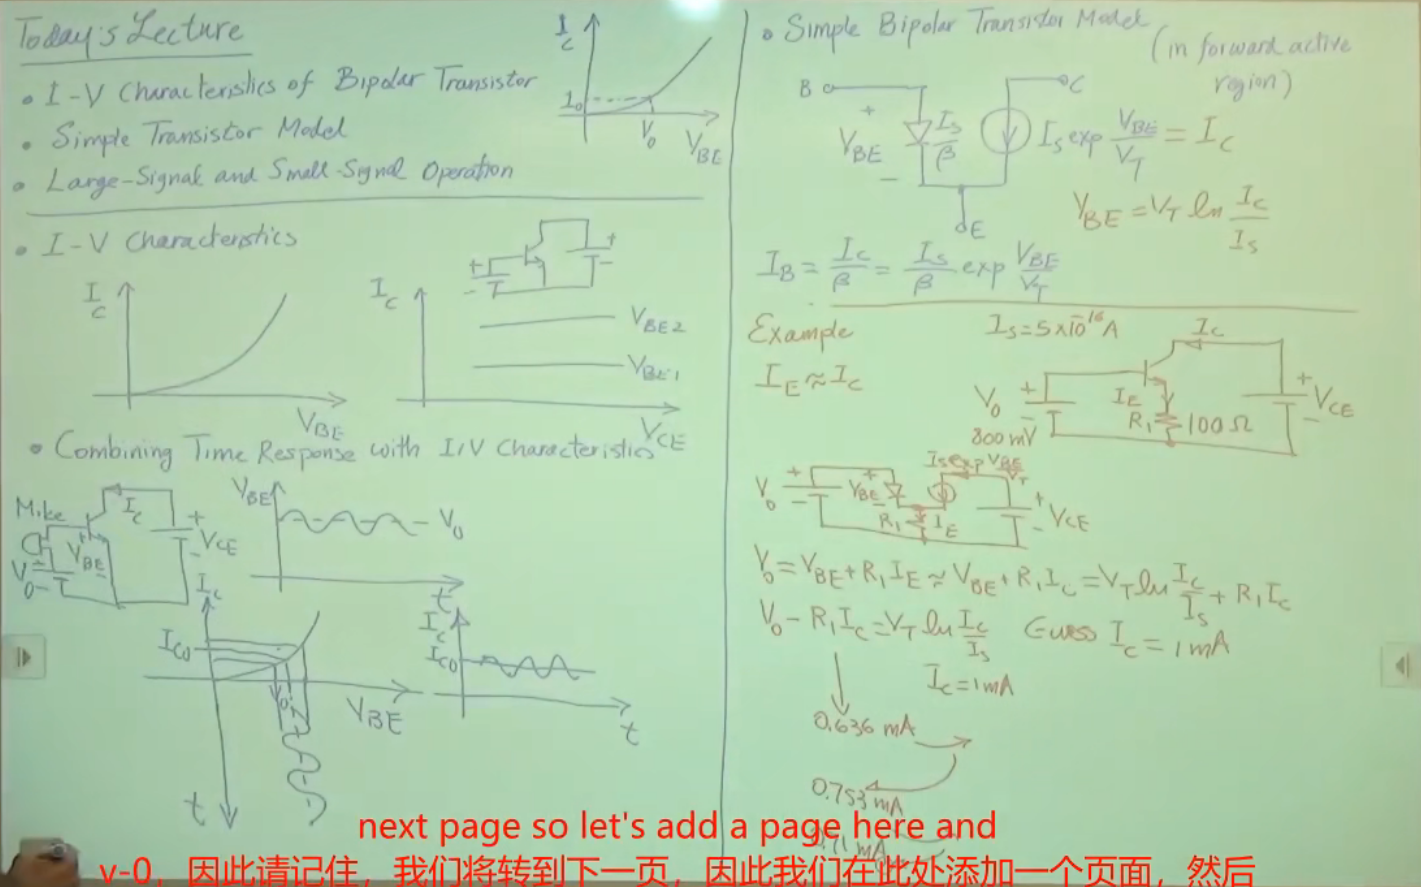 Today's Lecture
• I-V Characteristics of Bipolar Transistor
• Simple Transistor Model
• Large-Signal and Small-Signal Operation
I_C
I_0
V_0
V_BE
• I-V Characteristics
I_C
V_BE
I_C
V_BE2
V_BE1
V_CE
+
-
+
-
• Combining Time Response with I/V Characteristics
Mike
I_C
+
V_CE
-
V_BE
V_0
V_BE
V_0
t
I_C
I_C0
V_0
V_BE
t
I_C
I_C0
t
• Simple Bipolar Transistor Model
(in forward active
region)
B
C
+
V_BE
-
I_S/β
I_S exp V_BE/V_T = I_C
E
V_BE = V_T ln I_C/I_S
I_B = I_C/β = I_S/β exp V_BE/V_T
Example
I_S = 5×10^-16 A
I_E ≈ I_C
I_C
V_0
+
-
800 mV
I_E
R_1
100 Ω
+
V_CE
-
V_0
+
-
+
V_BE
I_S exp V_BE/V_T
R_1
I_E
+
V_CE
-
V_0 = V_BE + R_1 I_E ≈ V_BE + R_1 I_C = V_T ln I_C/I_S + R_1 I_C
V_0 - R_1 I_C = V_T ln I_C/I_S Guess I_C = 1 mA
I_C = 1 mA
0.636 mA
0.753 mA
0.71 mA
next page so let's add a page here and
v-0，因此请记住，我们将转到下一页，因此我们在此处添加一个页面，然后